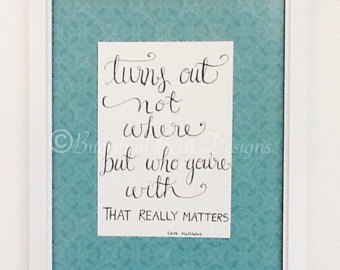 turns out
not
where
but who you're
with
THAT REALLY MATTERS
DAVE MATTHEWS